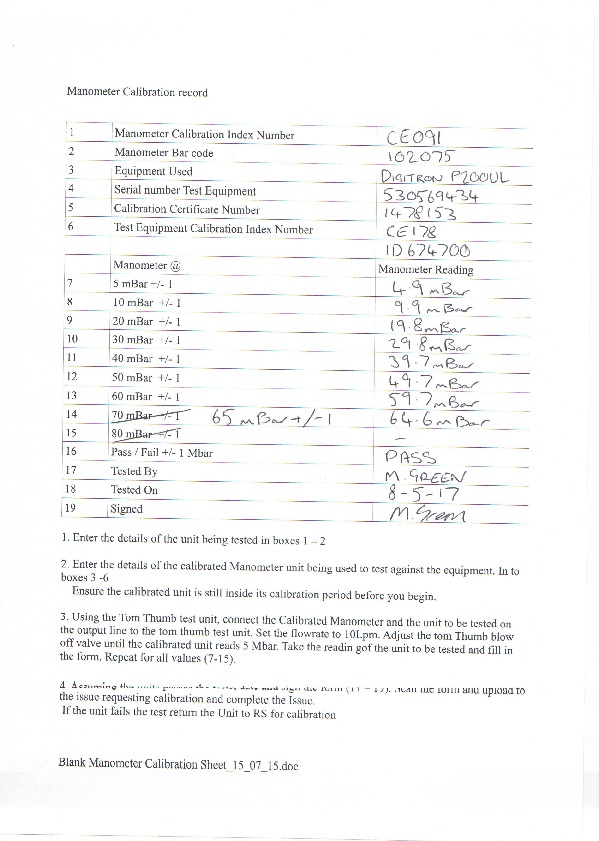 Manometer Calibration record
1 Manometer Calibration Index Number CE091
2 Manometer Bar code 102075
3 Equipment Used DIGITRON P200UL
4 Serial number Test Equipment 530569434
5 Calibration Certificate Number 1478153
6 Test Equipment Calibration Index Number CE178
ID674700
Manometer @ Manometer Reading
7 5 mBar +/- 1 4.9 mBar
8 10 mBar +/- 1 9.9 mBar
9 20 mBar +/- 1 19.8 mBar
10 30 mBar +/- 1 29.8 mBar
11 40 mBar +/- 1 39.7 mBar
12 50 mBar +/- 1 49.7 mBar
13 60 mBar +/- 1 59.7 mBar
14 70 mBar +/- 1 65 mBar +/- 1 64.6 mBar
15 80 mBar +/- 1 -
16 Pass / Fail +/- 1 Mbar PASS
17 Tested By M. GREEN
18 Tested On 8-5-17
19 Signed M. Green
1. Enter the details of the unit being tested in boxes 1 – 2
2. Enter the details of the calibrated Manometer unit being used to test against the equipment. In to
boxes 3 -6
Ensure the calibrated unit is still inside its calibration period before you begin.
3. Using the Tom Thumb test unit, connect the Calibrated Manometer and the unit to be tested on
the output line to the tom thumb test unit. Set the flowrate to 10Lpm. Adjust the tom Thumb blow
off valve until the calibrated unit reads 5 Mbar. Take the readin gof the unit to be tested and fill in
the form. Repeat for all values (7-15).
4. Assuming the units passes the tests, date and sign the form (17 – 19). Scan the form and upload to
the issue requesting calibration and complete the Issue.
If the unit fails the test return the Unit to RS for calibration
Blank Manometer Calibration Sheet_15_07_15.doc